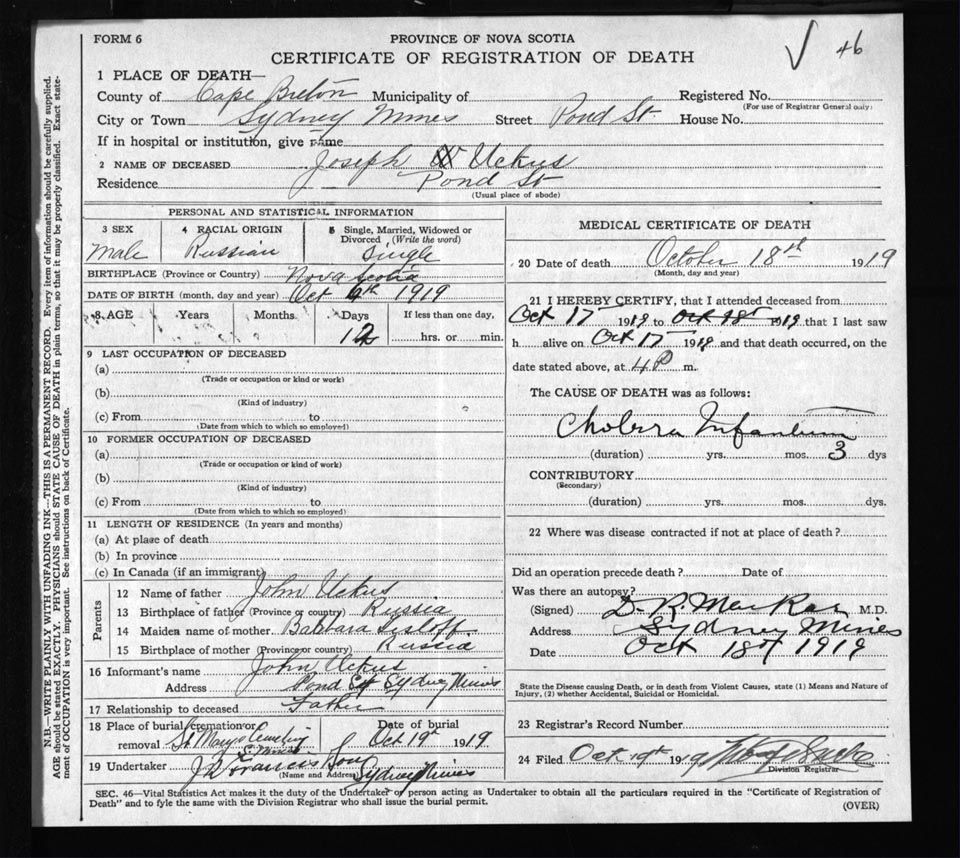 FORM 6
PROVINCE OF NOVA SCOTIA
CERTIFICATE OF REGISTRATION OF DEATH
√ 46
1 PLACE OF DEATH—
County of Cape Breton Municipality of Registered No.
(For use of Registrar General only)
City or Town Sydney Mines Street Pond St. House No.
If in hospital or institution, give name
2 NAME OF DECEASED Joseph Uckus
Residence Pond St
(Usual place of abode)
PERSONAL AND STATISTICAL INFORMATION
3 SEX 4 RACIAL ORIGIN 5 Single, Married, Widowed or Divorced (Write the word)
Male Russian Single
BIRTHPLACE (Province or Country) Nova Scotia
DATE OF BIRTH (month, day and year) Oct 6th 1919
8 AGE Years Months Days If less than one day,
12 hrs. or min.
9 LAST OCCUPATION OF DECEASED
(a)
(Trade or occupation or kind or work)
(b)
(Kind of industry)
(c) From to
(Date from which to which so employed)
10 FORMER OCCUPATION OF DECEASED
(a)
(Trade or occupation or kind of work)
(b)
(Kind of industry)
(c) From to
(Date from which to which so employed)
11 LENGTH OF RESIDENCE (In years and months)
(a) At place of death
(b) In province
(c) In Canada (if an immigrant)
Parents
12 Name of father John Uckus
13 Birthplace of father (Province or country) Russia
14 Maiden name of mother Barbara
15 Birthplace of mother (Province or country) Russia
16 Informant's name John Uckus
Address Pond St Sydney Mines
17 Relationship to deceased Father
18 Place of burial, cremation or Date of burial
removal St Mary's Cemetery S. Mines Oct 19th 1919
19 Undertaker Francis Son Sydney Mines
(Name and Address)
MEDICAL CERTIFICATE OF DEATH
20 Date of death October 18th 1919
(Month, day and year)
21 I HEREBY CERTIFY, that I attended deceased from
Oct 17 1919 to Oct 18th 1919 that I last saw
h alive on Oct 17 1919 and that death occurred, on the
date stated above, at 4 P m.
The CAUSE OF DEATH was as follows:
Cholera Infantum
(duration) yrs. mos. 3 dys
CONTRIBUTORY
(Secondary)
(duration) yrs. mos. dys.
22 Where was disease contracted if not at place of death?
Did an operation precede death? Date of
Was there an autopsy?
(Signed) D. R. M.D.
Address Sydney Mines
Date Oct 18th 1919
State the Disease causing Death, or in death from Violent Causes, state (1) Means and Nature of
Injury, (2) whether Accidental, Suicidal or Homicidal.
23 Registrar's Record Number
24 Filed Oct 19th 1919
Division Registrar
SEC. 46—Vital Statistics Act makes it the duty of the Undertaker or person acting as Undertaker to obtain all the particulars required in the "Certificate of Registration of
Death" and to fyle the same with the Division Registrar who shall issue the burial permit.
(OVER)
N.B.—WRITE PLAINLY WITH UNFADING INK—THIS IS A PERMANENT RECORD. Every item of information should be carefully supplied.
AGE should be stated EXACTLY. PHYSICIANS should STATE CAUSE OF DEATH in plain terms, so that it may be properly classified. Exact state-
ment of OCCUPATION is very important. See instructions on back of Certificate.